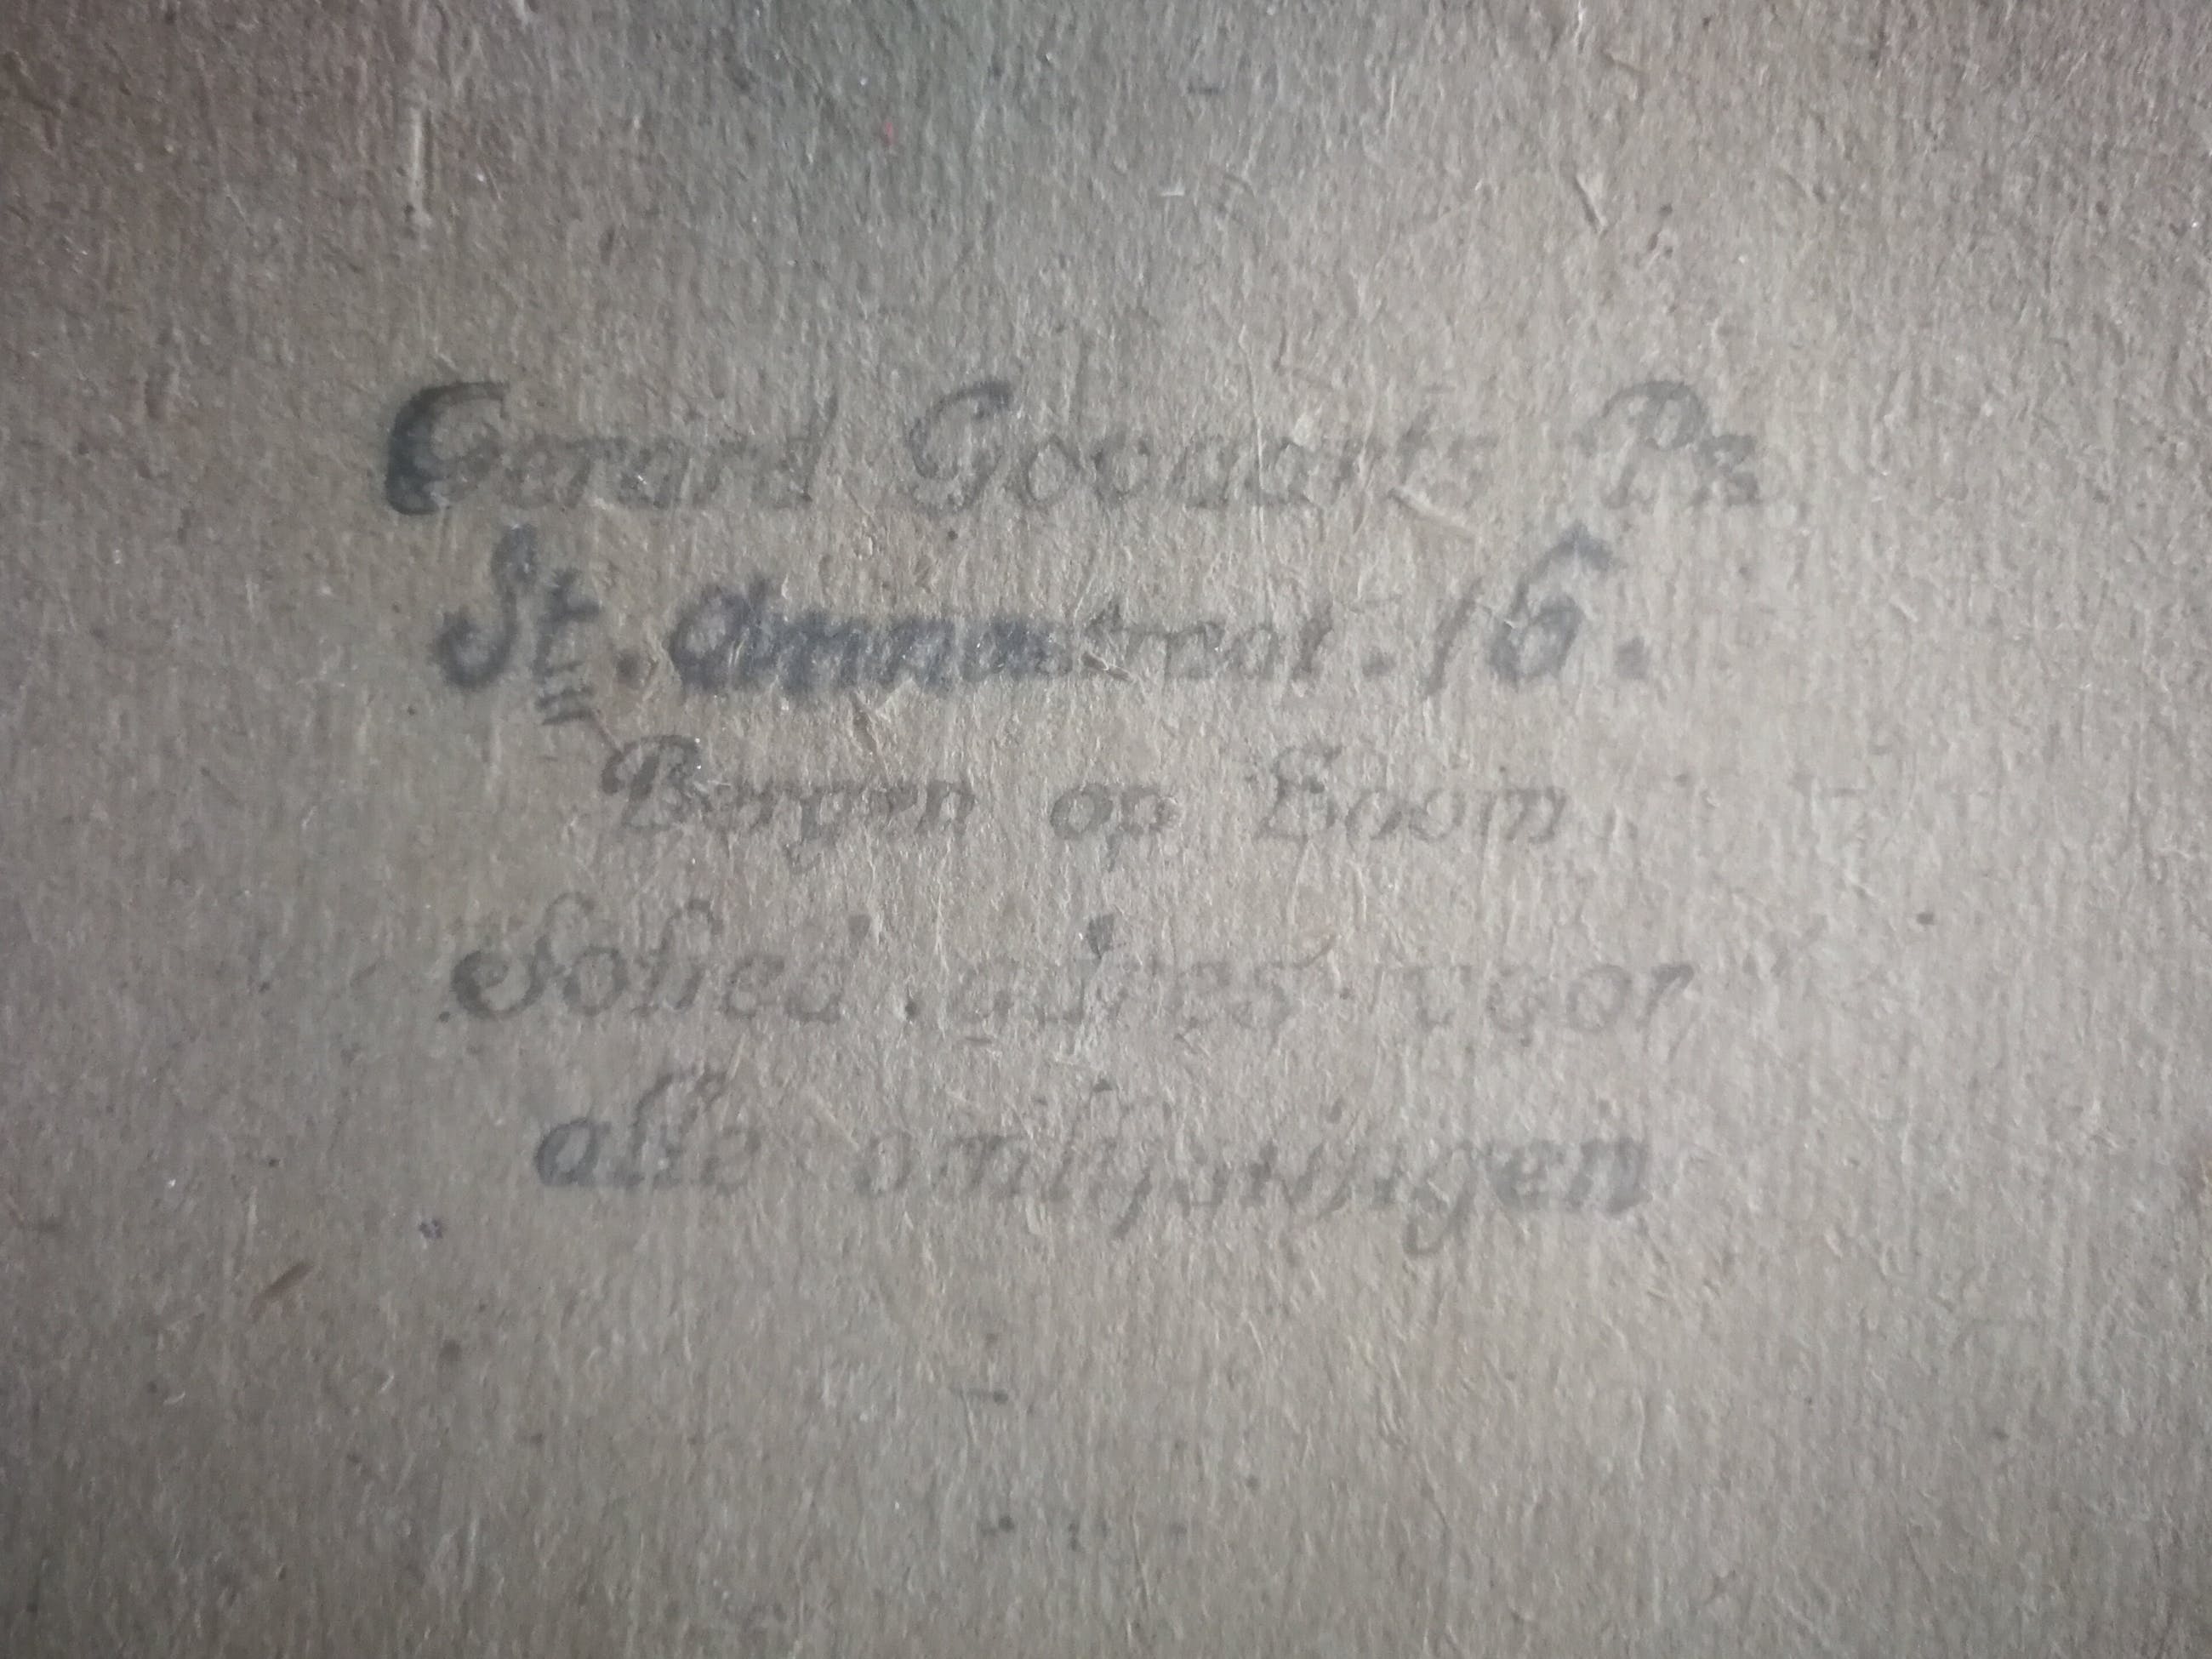 Gerard Govaarts Pz
St. Annastraat. 16.
Bergen op Zoom
Solied adres voor
alle omlijstingen